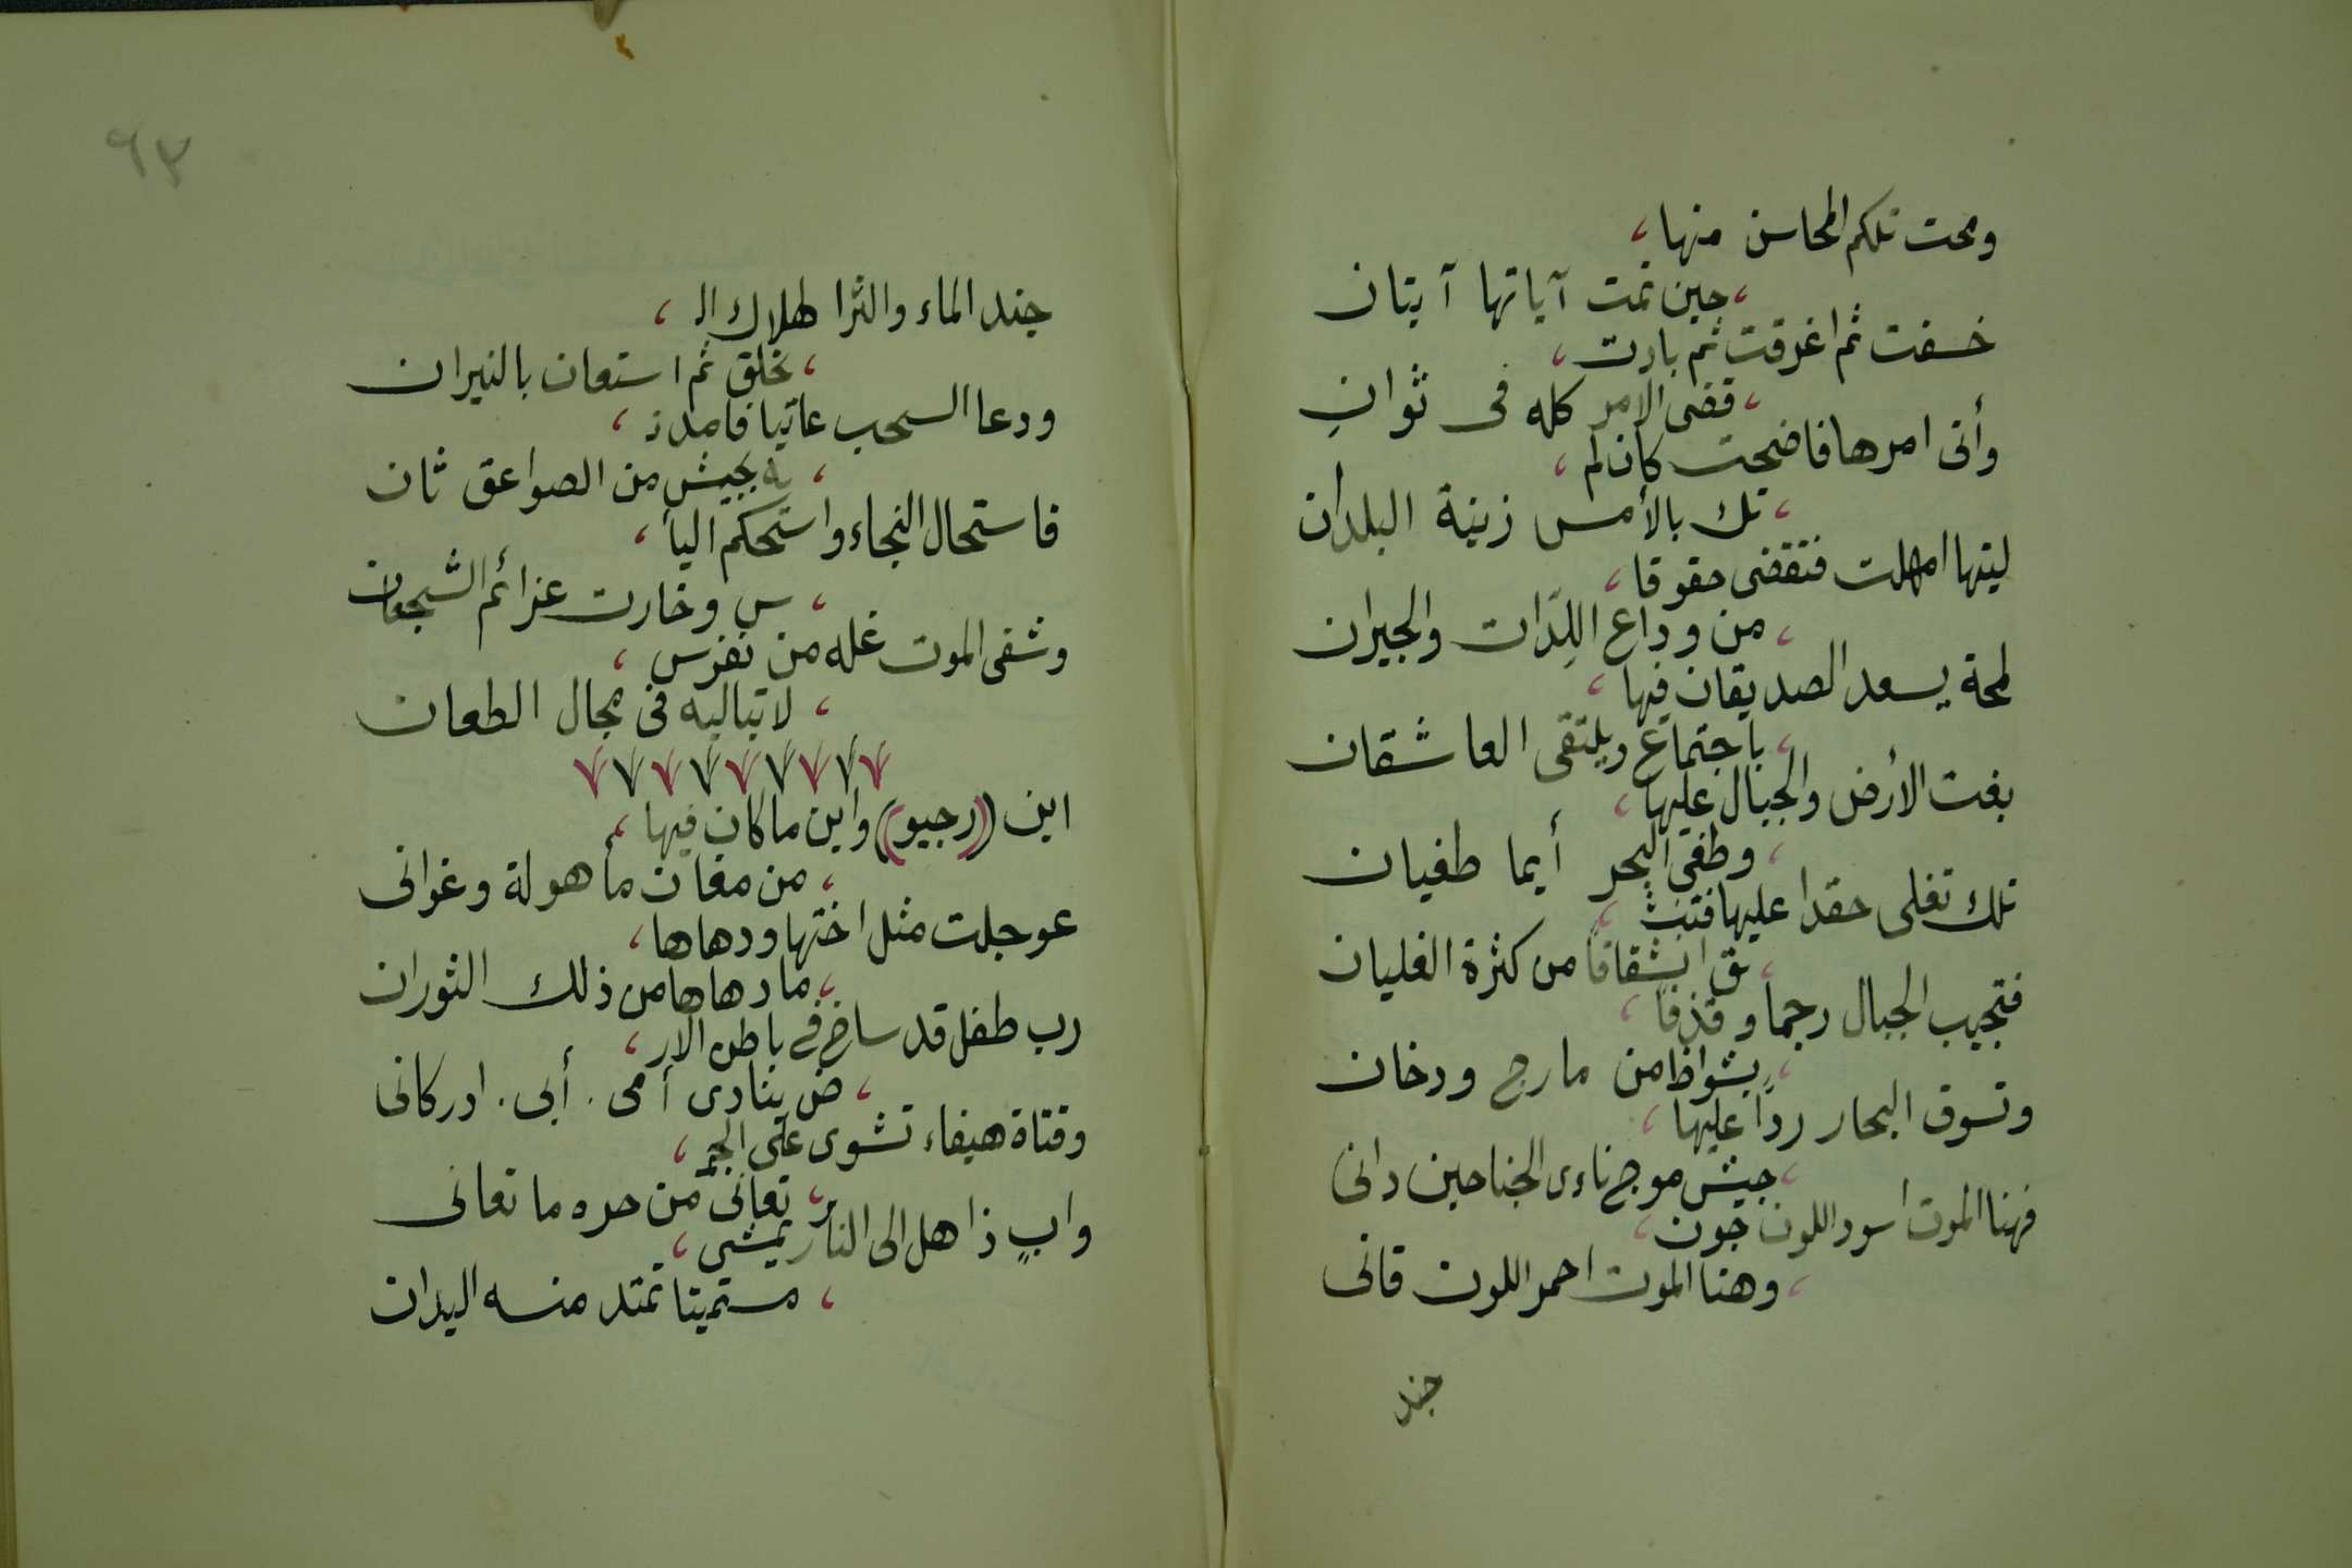 ومحت تلكم المحاسن منها،
،حين تمت آياتها آيتان
خسفت ثم اغرقت ثم بادت،
،قضى الامر كله فى ثوانِ
وأتى امرها فاضحت كأن لم،
،تك بالأمس زينة البلدان
ليتها امهلت فتقضى حقوقا،
،من وداع اللِدّات والجيران
لمحة يسعد الصديقان فيها،
،باجتماع ويلتقى العاشقان
بغت الأرض والجبال عليها،
،وطغى البحر أيما طغيان
تلك تغلى حقدا عليها فتنشـ،
،ـق انشقاقا من كثرة الغليان
فتجيب الجبال رجما وقذفا،
،بشواظ من مارج ودخان
وتسوق البحار رداً عليها،
،جيش موج ناءى الجناحين دانى
فهنا الموت اسود اللون جون،
،وهنا الموت احمر اللون قانى
جند
٦٣
جند الماء والثرا لهلاك الـ،
،ـخلق ثم استعان بالنيران
ودعا السحب عاتيا فامدتـ،
،ـه بجيش من الصواعق ثان
فاستحال النجاء واستحكم اليأ،
،س وخارت عزائم الشجعان
وشفى الموت غله من نفوس،
،لا تباليه فى مجال الطعان
اين ((رجيو)) واين ما كان فيها،
،من مغان مأهولة وغوانى
عوجلت مثل اختها ودهاها،
،ما دهاها من ذلك الثوران
رب طفل قد ساخ فى باطن الأر،
،ض ينادى أمى. أبى. ادركانى
وفتاة هيفاء تشوى على الجمـ،
،ـر تعانى من حره ما تعانى
وابٍ ذاهل الى النار يمشى،
،مستميتا تمتد منه اليدان